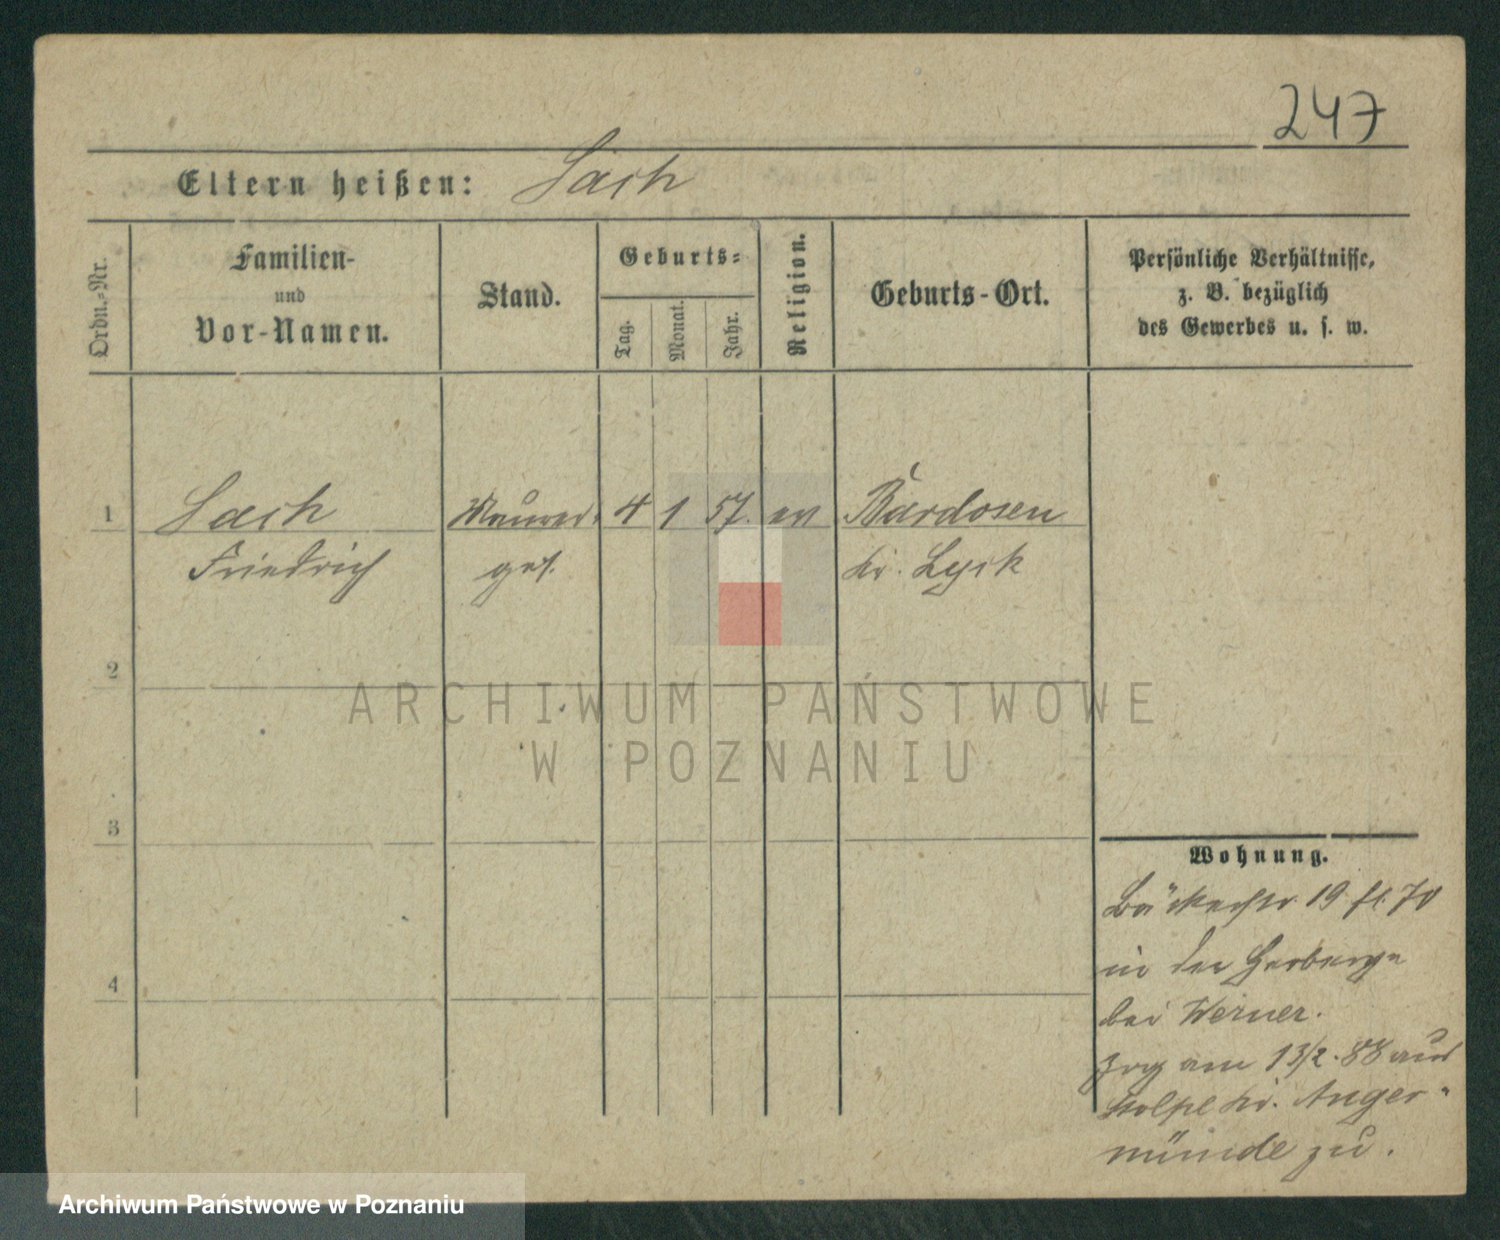 247
Eltern heißen: Sach
Ordn.-Nr.
Familien-
und
Vor-Namen.
Stand.
Geburts-
Tag.
Monat.
Jahr.
Religion.
Geburts-Ort.
Persönliche Verhältnisse,
z. B. bezüglich
des Gewerbes u. s. w.
1 Sach Maurer- 4 1 57. ev Bardosen
Friedrich ges. Kr. Lyck
2
ARCHIWUM PAŃSTWOWE
W POZNANIU
3
Wohnung.
Bäckerstr. 19. 70
in der Herberge
4
bei Werner.
Zog am 13/2. 88 aus
Stolpe Kr. Anger-
münde zu.
Archiwum Państwowe w Poznaniu